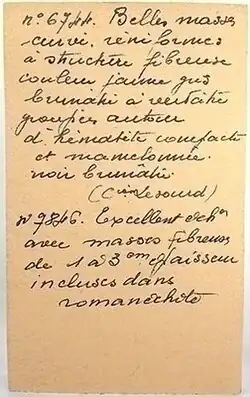 n° 6744. Belles masses
curvi. réniformes
à structure fibreuse
couleur jaune gris
brunâtre à verdâtre
groupées autour
d'hématite compacte
et mamelonnée.
noir brunâtre.
(Cion Lesourd)
N° 9846. Excellent échon
avec masses fibreuses
de 1 à 3 cm épaisseur
incluses dans
romanéchite